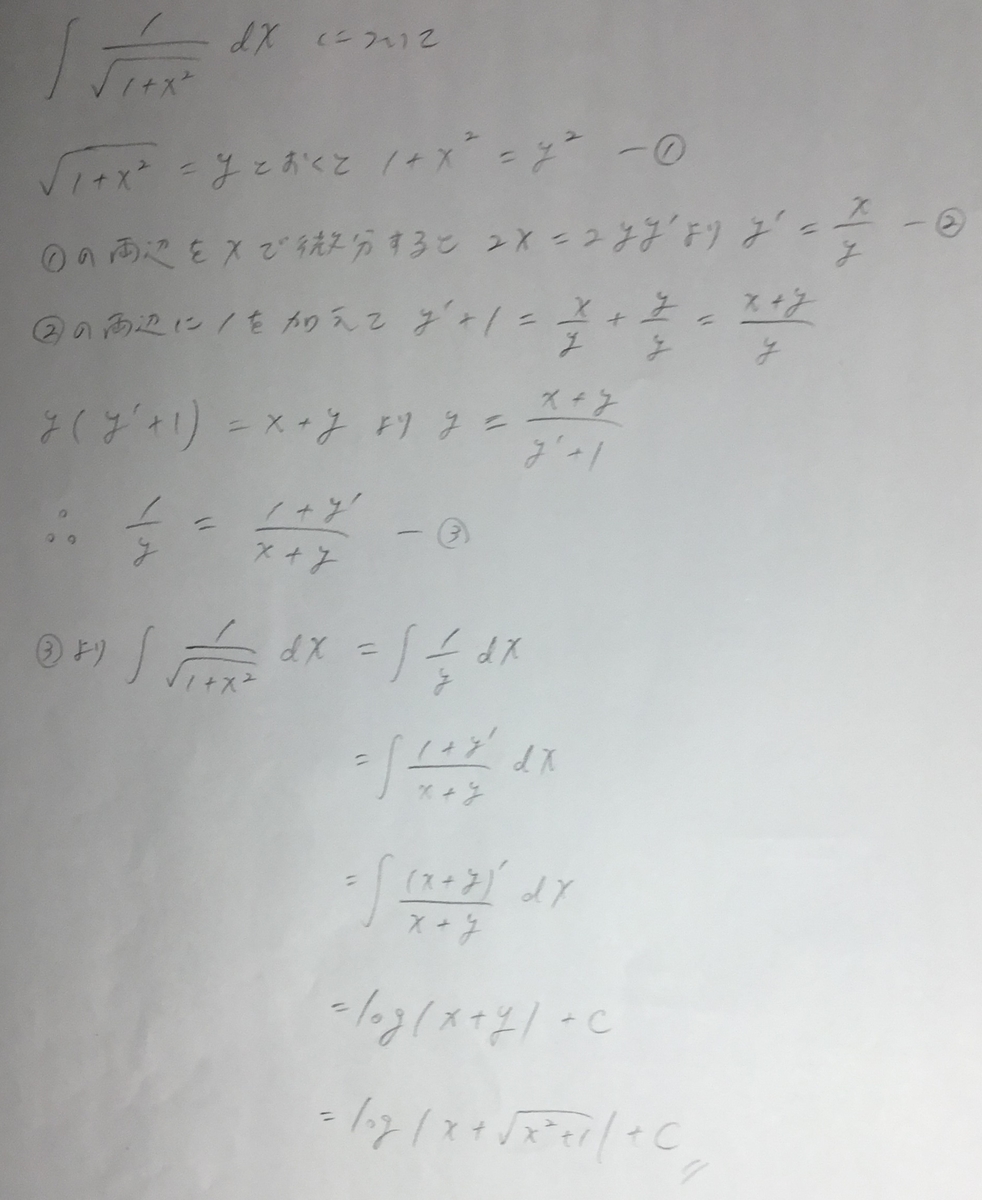 ∫ 1/√(1+x²) dx について
√(1+x²) = y とおくと 1+x² = y² ー①
①の両辺をxで微分すると 2x = 2yy' より y' = x/y ー②
②の両辺に1を加えて y'+1 = x/y + y/y = (x+y)/y
y(y'+1) = x+y より y = (x+y)/(y'+1)
∴ 1/y = (1+y')/(x+y) ー③
③より ∫ 1/√(1+x²) dx = ∫ 1/y dx
= ∫ (1+y')/(x+y) dx
= ∫ (x+y)'/(x+y) dx
= log|x+y| + C
= log|x+√(x²+1)| + C